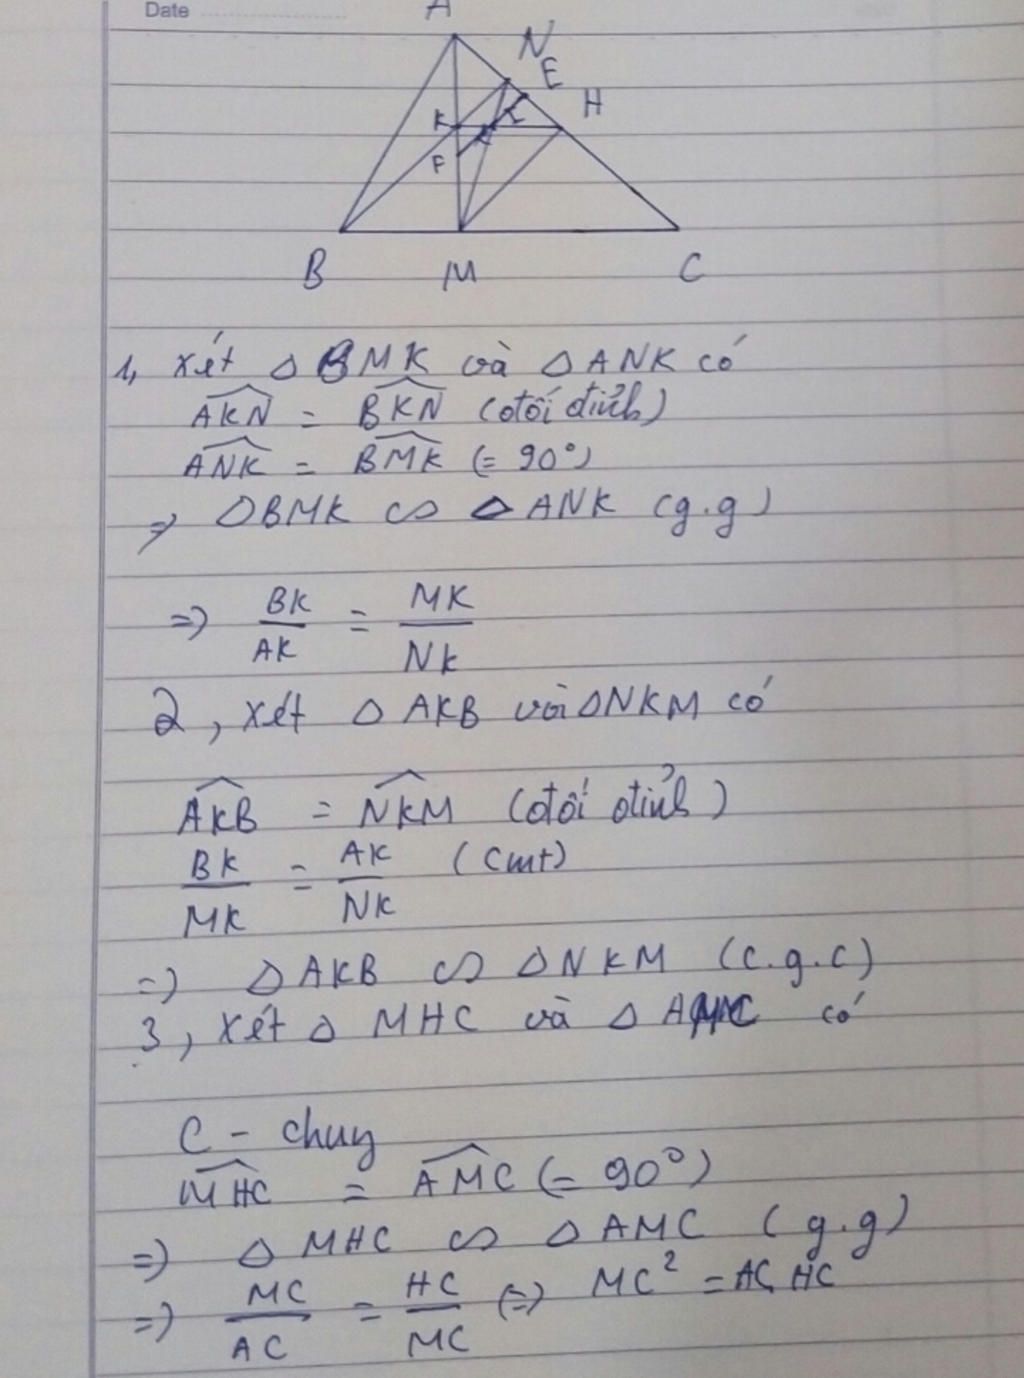 Date
A
N
E
H
K
I
F
B M C
1, xét △ BMK và △ ANK có
$\widehat{AKN}$ = $\widehat{BKN}$ (đối đỉnh)
$\widehat{ANK}$ = $\widehat{BMK}$ (= 90°)
=> △BMK ∽ △ ANK (g.g)
=> $\frac{BK}{AK}$ = $\frac{MK}{NK}$
2, xét △ AKB với △NKM có
$\widehat{AKB}$ = $\widehat{NKM}$ (đối đỉnh)
$\frac{BK}{MK}$ = $\frac{AK}{NK}$ (cmt)
=> △ AKB ∽ △NKM (c.g.c)
3, xét △ MHC và △ AMC có
C - chuy
$\widehat{MHC}$ = $\widehat{AMC}$ (= 90°)
=> △ MHC ∽ △ AMC (g.g)
=> $\frac{MC}{AC}$ = $\frac{HC}{MC}$ (=> MC² = AC, HC